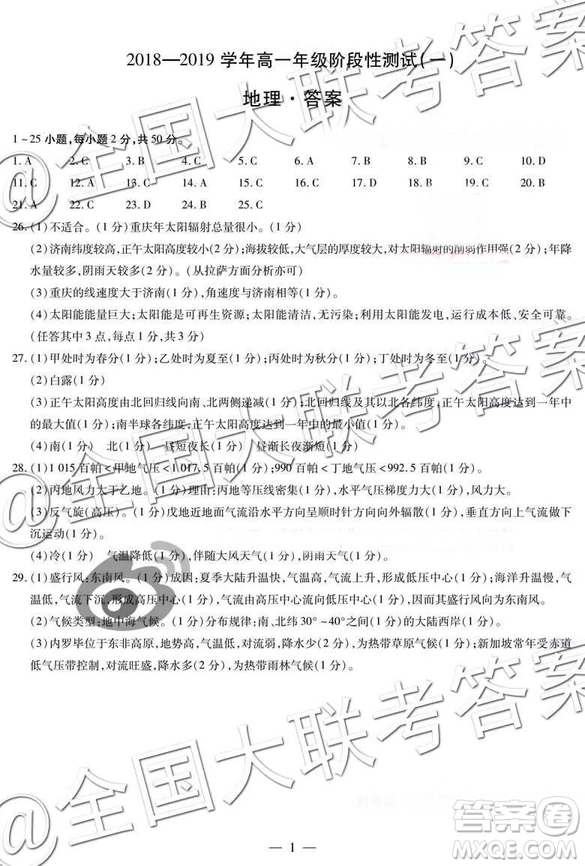 2018—2019 学年高一年级阶段性测试(一)
地理·答案
1~25 小题,每小题 2 分,共 50 分。
1. A 2. C 3. B 4. C 5. A 6. D 7. B 8. C 9. C 10. D
11. C 12. D 13. D 14. A 15. A 16. D 17. A 18. B 19. C 20. B
21. A 22. C 23. B 24. B 25. C
26. (1)不适合。(1 分)重庆年太阳辐射总量很小。(1 分)
(2)济南纬度较高,正午太阳高度较小(2 分);海拔较低,大气层的厚度较大,对太阳辐射的削弱作用强(2 分);年降
水量较大,阴雨天较多(2 分)。(从拉萨方面分析亦可)
(3)重庆的线速度大于济南(1 分),角速度与济南相等。(1 分)
(4)太阳能能量巨大;太阳能是可再生资源;无污染;利用太阳能发电,运行成本低、安全可靠。
(任答其中 3 点,每点 1 分,共 3 分)
27. (1)甲处时为春分(1 分);乙处时为夏至(1 分);丙处时为秋分(1 分);丁处时为冬至(1 分)。
(2)白露(1 分)
(3)正午太阳高度由北回归线向南、北两侧递减(1 分);北回归线及其以北各纬度,正午太阳高度达到一年中
的最大值(1 分);南半球各纬度,正午太阳高度达到一年中的最小值(1 分)。
(4)南(1 分) 北(1 分) 昼短夜长(1 分) 昼渐长夜渐短(1 分)
28. (1)1 015 百帕<甲地气压<1 017. 5 百帕(1 分);990 百帕<丁地气压<992. 5 百帕(1 分)。
(2)丙地风力大于乙地。(1 分)理由:丙地等压线密集,水平气压梯度力大(1 分),风力大(1 分)。
(3)反气旋(高压)。(1 分)戊地近地面气流沿水平方向呈顺时针方向向外辐散(1 分),垂直方向气流做下
沉运动。(1 分)
(4)冷(1 分) 气温降低(1 分),伴随大风天气(1 分),阴雨天气(1 分)。
29. (1)盛行风:东南风。(1 分)成因:夏季大陆升温快,气温高,气流上升,形成低压中心(1 分);海洋升温慢,气
温低,气流下沉,形成高压中心(1 分)。因此形成的盛行风向为东南风。
(2)气候类型:地中海气候。(1 分)分布规律:南、北纬 30°~40°(1 分)的大陆西岸(1 分)。
(3)内罗毕位于东非高原,地势高,对流较弱,降水少(2 分),为热带草原气候(1 分);新加坡常年受赤道
低气压带控制,对流旺盛,降水多(2 分),为热带雨林气候(1 分)。
— 1 —
@全国大联考答案
答案卷
MXQE.COM